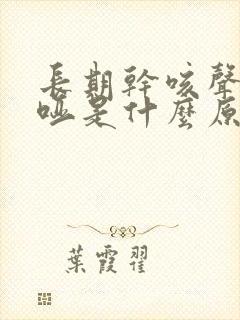 長期幹咳聲
啞是什麼原
葉霞翟